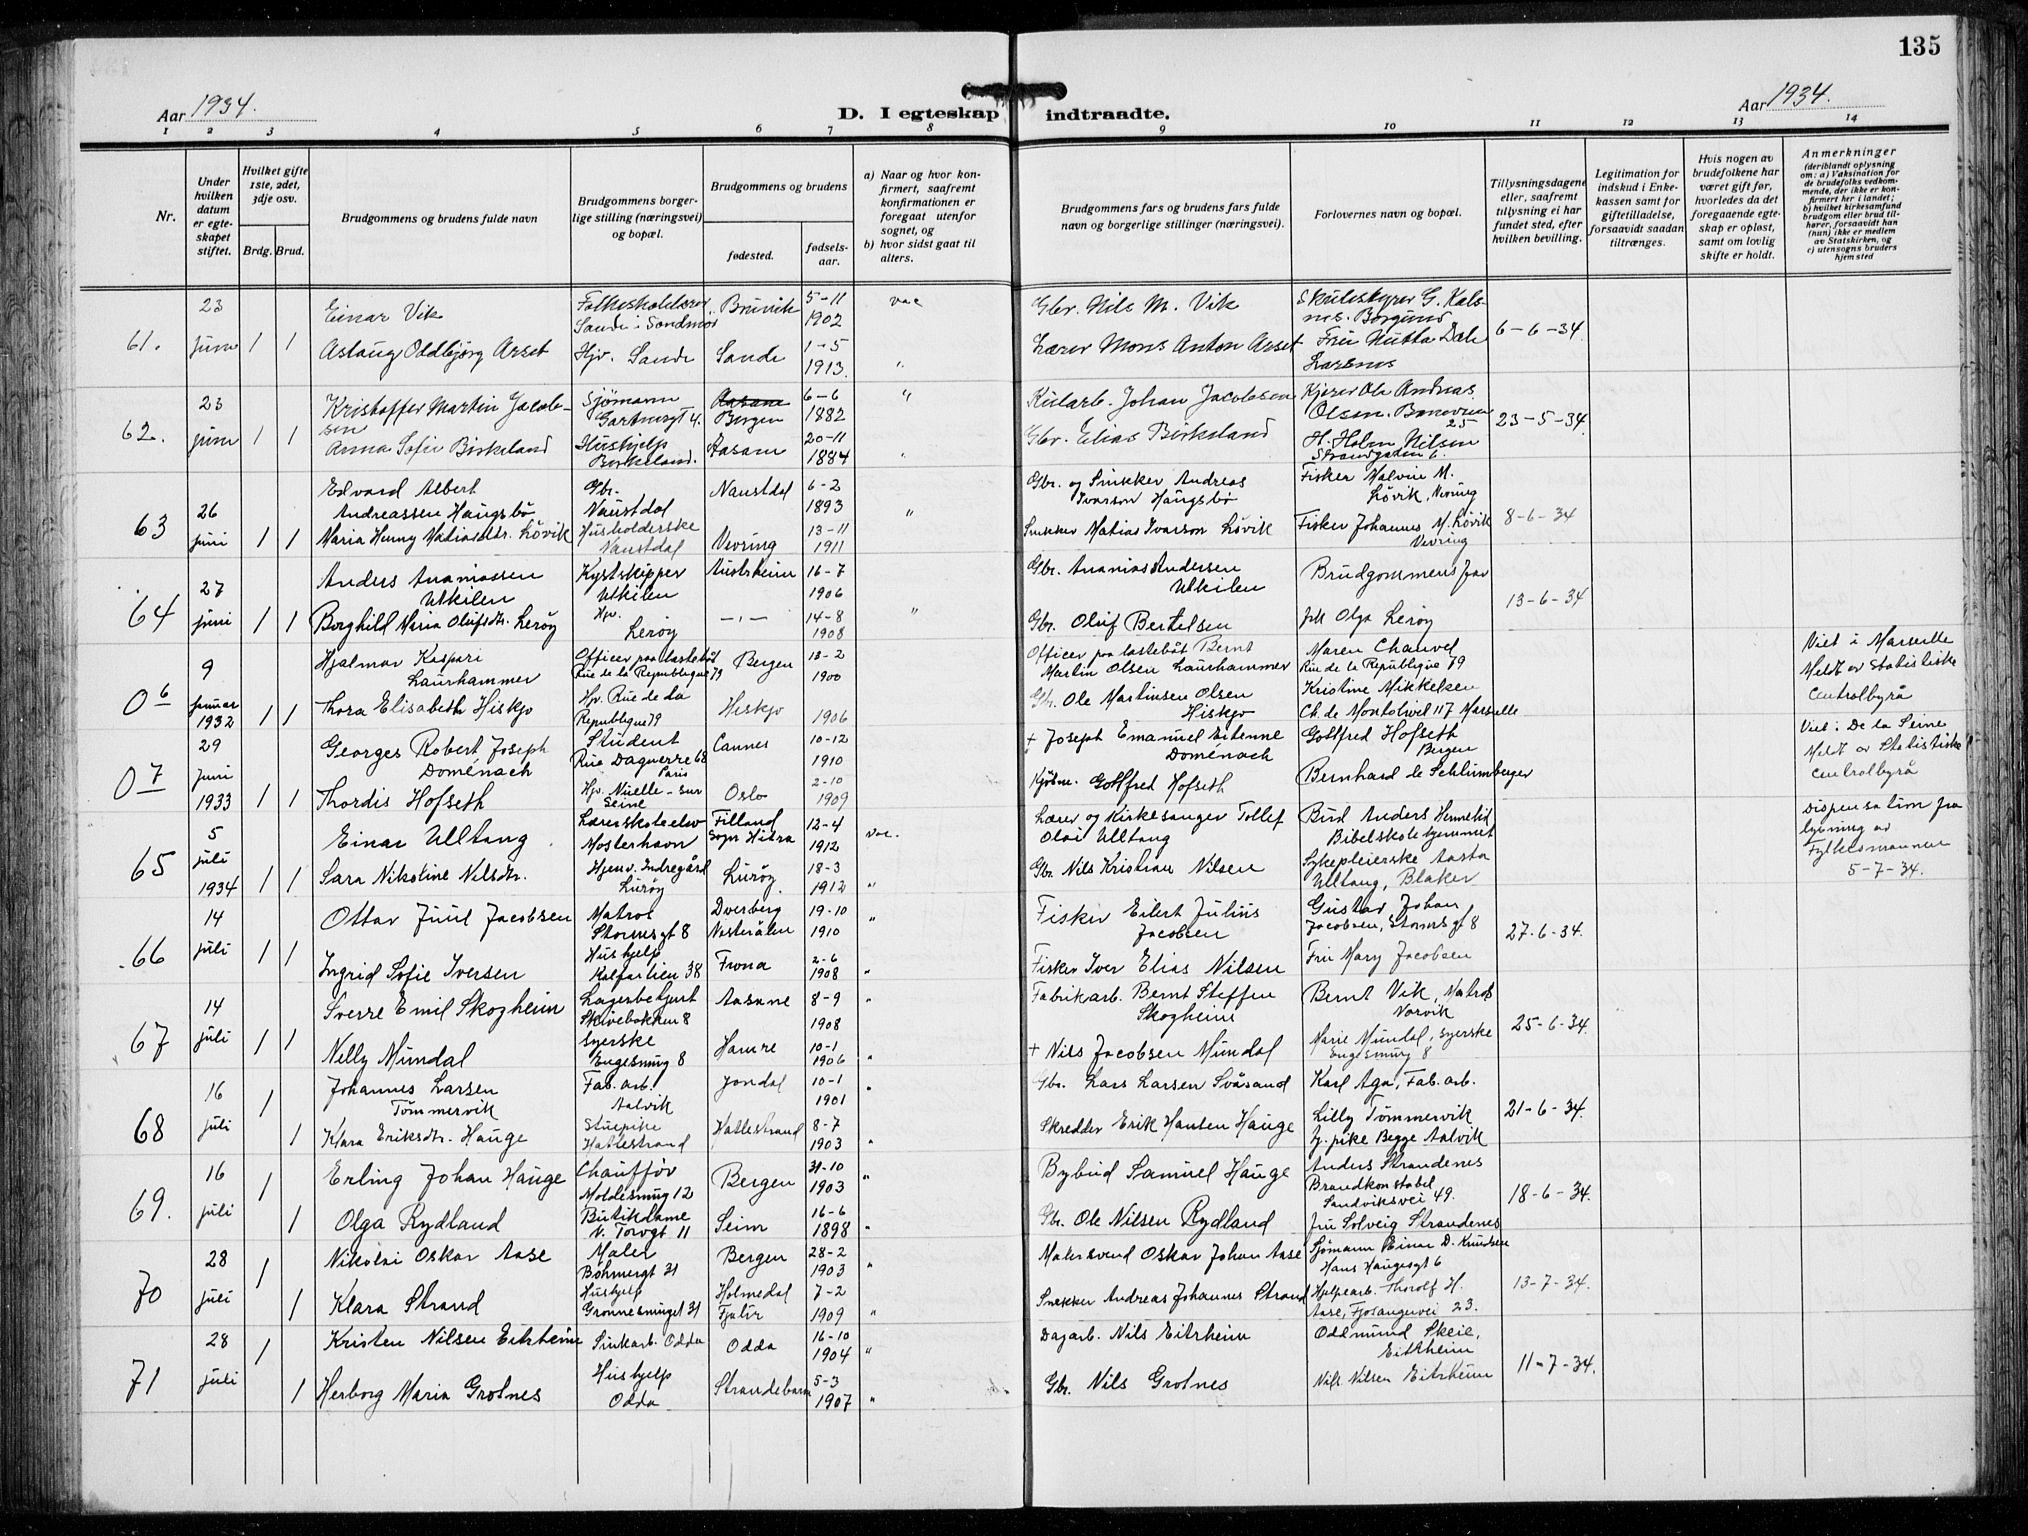 135
Aar 1934.
D. I egteskap indtraadte.
Aar 1934.
1 2 3 4 5 6 7 8 9 10 11 12 13 14
Nr.
Under hvilken datum er egteskapet stiftet.
Hvilket gifte 1ste, 2det, 3dje osv.
Brdg. Brud.
Brudgommens og brudens fulde navn
Brudgommens borgerlige stilling (næringsvei) og bopæl.
Brudgommens og brudens
fødested.
fødselsaar.
a) Naar og hvor konfirmert, saafremt konfirmationen er foregaat utenfor sognet, og
b) hvor sidst gaat til alters.
Brudgommens fars og brudens fars fulde navn og borgerlige stillinger (næringsvei).
Forlovernes navn og bopæl.
Tillysningsdagene eller, saafremt tillysning ei har fundet sted, efter hvilken bevilling.
Legitimation for indskud i Enkekassen samt for giftetilladelse, forsaavidt saadan tiltrænges.
Hvis nogen av brudefolkene har været gift før, hvorledes da det foregaaende egteskap er opløst, samt om lovlig skifte er holdt.
Anmerkninger
(deriblandt oplysning om: a) Vaksination for de brudefolks vedkommende, der ikke er konfirmert her i landet; b) hvilket kirkesamfund brudgom eller brud tilhører, forsaavidt han (hun) ikke er medlem av Statskirken, og c) utensogns bruders hjemsted
61. 23 juni 1 1
Einar Vik Sande i Søndmør Bruvik 5-11 1902 vac Gbr. Nils M. Vik 6-6-34
Aslaug Oddbjørg Arset Hjv. Sande Sande 1-5 1913. Lærer Mons Anton Arset Fru Hutta Dale Larsnes
62. 23 juni 1 1
Kristoffer Martin Jacobsen Sjømann Gartnergt 4. Bergen 6-6 1882 " Johan Jacobsen Ole Andreas Olsen. 25 23-5-34
Anna Sofie Birkeland Hushjelp Birkeland. Aasane 20-11 1884 Gbr. Elias Birkeland H. Holm Nilsen Strandgaden 6.
63 26 juni 1 1
Edvard Albert Andreassen Haugsbø Gbr. Naustdal Naustdal 6-2 1893 " Gbr. og Snikker Andreas Ivarson Haugsbø Fisker Malvin M. Løvik, Vevring 8-6-34
Maria Henny Matiasdtr. Løvik Husholderske Naustdal Vevring 13-11 1911 Snikker Matias Ivarson Løvik Fisker Johannes M. Løvik Vevring
64 27 juni 1 1
Anders Ananiassen Utkilen Kystskipper Utkilen Austrheim 16-7 1906 Gbr. Ananias Andersen Utkilen Brudgommens far 13-6-34
Borghild Maria Olufsdtr. Lerøy Hjv. Lerøy -"- 14-8 1908 " Gbr. Oluf Bertelsen Frk Olga Lerøy
0 6 9 januar 1932 1 1
Hjalmar Kaspari Laurhammer Officer paa lastebåt Rue de la Republique 79 Bergen 13-2 1900 Officer paa lastebåt Bernt Martin Olsen Laurhammer Maren Chauvel Rue de la Republique 79 Viet i Marseille Meldt av Statistiske Centralbyrå
Thora Elisabeth Hiskjo Hjv. Rue de la Republique 79 Hiskjo 1906 Gbr. Ole Martinsen Olsen Hiskjo Kristine Mikkelsen Ch. de Montolivet 117 Marseille
0 7 29 Juni 1933 1 1
Georges Robert Joseph Doménach Student Rue Daguerre 68 Paris Cannes 10-12 1910 + Joseph Emanuel Etienne Doménach Gottfred Hofseth Bergen Viet i De la Seine Meldt av Statistiske Centralbyrå
Thordis Hofseth Hjv. Nuelle-sur Seine Oslo 2-10 1909 Kjøbm. Gottfred Hofseth Bernhard de Schlumberger
65 5 juli 1934 1 1
Einar Ulltang Lærerskoleelev Mosterhavn Filland Sogn Hitra 12-4 1912 vac. Lærer og Kirkesanger Tollef Olai Ulltang Anders Hennelid Bibelskolehjemmet Dispensation fra lysning av Fylkesmannen 5-7-34.
Sara Nikoline Nilsdtr. Hjemv. Indregård Lurøy Lurøy 18-3 1912 " Gbr. Nils Kristian Nilsen Sykepleierske Aasta Ulltang, Blaker
66 14 juli 1 1
Ottar Juul Jacobsen Matros Stormsgt 8 Dverberg Vesterålen 19-10 1910 " Fisker Eilert Julius Jacobsen Gustav Johan Jacobsen, Stormsgt 8 27-6-34.
Ingrid Sofie Iversen Hushjelp Kalfarlien 38 2-6 1908 " Fisker Iver Elias Nilsen Fru Mary Jacobsen
67 14 juli 1 1
Sverre Emil Skogheim Lagerbetjent Skivebakken 8 Aasane 8-9 1908 " Fabrikarb. Bernt Steffen Skogheim Bernt Vik, Matros 25-6-34.
Nelly Mundal Syerske Engesmug 8 Hamre 10-1 1906 " + Nils Jacobsen Mundal Marie Mundal, syerske Engesmug 8
68 16 juli 1 1
Johannes Larsen Tømmervik Fab. arb. Aalvik Jondal 10-1 1901 " Gbr. Lars Larsen Svåsand Karl Aga, Fab. arb. 21-6-34.
Klara Eriksdtr. Hauge Stuepike Hatlestrand Hatlestrand 8-7 1903 " Skredder Erik Hansen Hauge Lilly Tømmervik pike Begge Aalvik
69. 16 juli 1 1
Erling Johan Hauge Chauffør Moldesmug 12 Bergen 31-10 1903 " Bybud Samuel Hauge Anders Strandenes Brandkonstabel Sandviksvei 49. 18-6-34.
Olga Rydland Butikdame N. Torvgt 11 Seim 16-6 1898 " Gbr. Ole Nilsen Rydland Fru Solveig Strandenes
70 28 juli 1 1
Nikolai Oskar Aase Maler Bøhmergt 31 Bergen 28-2 1903 " Malersvend Oskar Johan Aase Sjømann Einar D. Knudsen Hans Haugesgt 6 13-7-34.
Klara Strand Hushjelp Holmedal Fjaler 7-2 1909 " Snekker Andreas Johannes Strand Hjelpearb. Thorolf H. Aase, Fjøsangervei 23.
71 28 juli 1 1
Kristen Nilsen Eitrheim Sinkarb. Odda Odda 16-10 1904 " Dagarb. Nils Eitrheim Oddmund Skeie, Eitrheim 11-7-34.
Herborg Maria Grotnes Hushjelp Odda Strandebarm 5-3 1907 " Gbr. Nils Grotnes Nils Nilsen Eitrheim